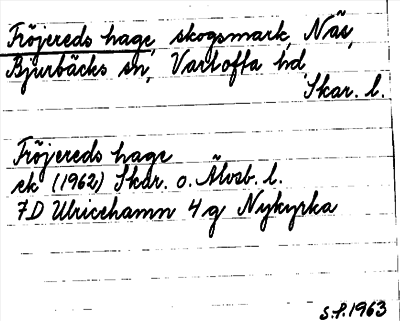 Fröjereds hage, skogsmark, Näs,
Bjurbäcks sn, Vartofta hd
Skar. l.
Fröjereds hage
ek (1962) Skar. o. Älvsb. l.
7D Ulricehamn 4 g Nykyrka
S.P. 1963